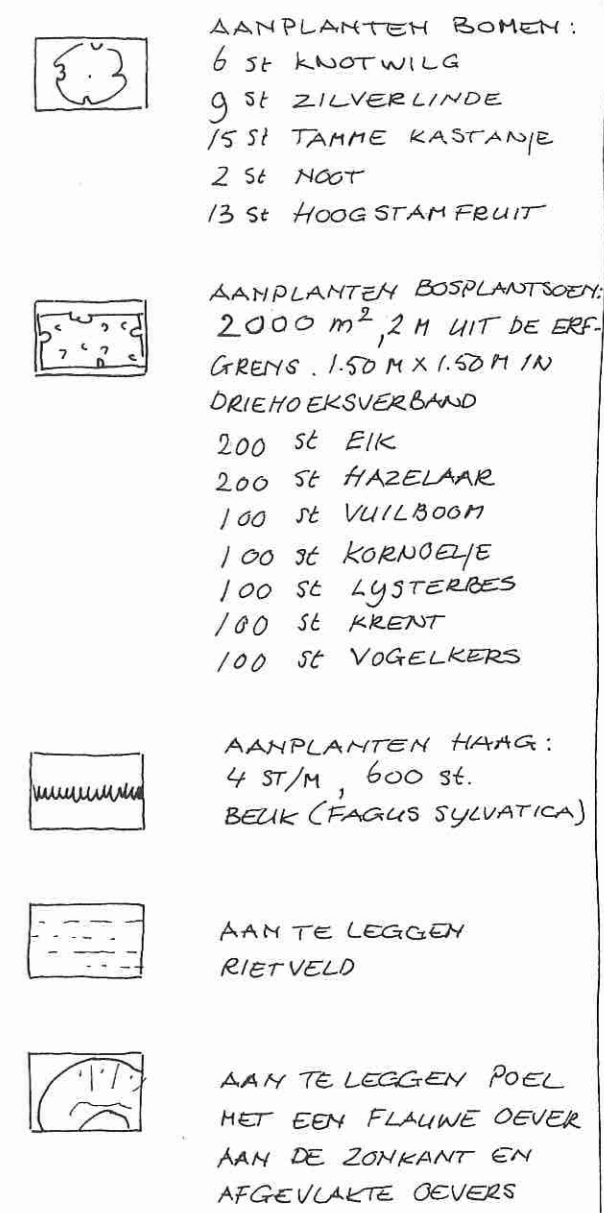 AANPLANTEN BOMEN:
6 St KNOTWILG
9 St ZILVERLINDE
15 St TAMME KASTANJE
2 St NOOT
13 St HOOGSTAM FRUIT
AANPLANTEN BOSPLANTSOEN:
2000 m², 2 M UIT DE ERF-
GRENS. 1.50 M X 1.50 M IN
DRIEHOEKSVERBAND
200 St EIK
200 St HAZELAAR
100 St VUILBOOM
100 St KORNOELJE
100 St LYSTERBES
100 St KRENT
100 St VOGELKERS
AANPLANTEN HAAG:
4 ST/M, 600 St.
BEUK (FAGUS SYLVATICA)
AAN TE LEGGEN
RIETVELD
AAN TE LEGGEN POEL
MET EEN FLAUWE OEVER
AAN DE ZONKANT EN
AFGEVLAKTE OEVERS